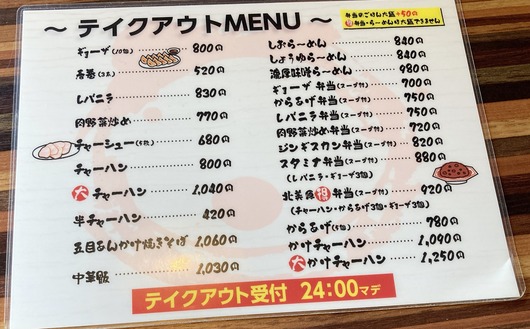 ～ テイクアウトMENU ～
弁当のごはん大盛+50円
弁当・らーめんは大盛できません
ギョーザ(10個) 800円
春巻(3本) 520円
レバニラ 830円
肉野菜炒め 770円
チャーシュー(5枚) 680円
チャーハン 800円
大チャーハン 1,040円
半チャーハン 420円
五目あんかけ焼きそば 1,060円
中華飯 1,030円
しおらーめん 840円
しょうゆらーめん 840円
濃厚味噌らーめん 980円
ギョーザ 弁当(スープ付) 700円
からあげ 弁当(スープ付) 750円
レバニラ 弁当(スープ付) 750円
肉野菜炒め 弁当(スープ付) 720円
ジンギスカン 弁当(スープ付) 820円
スタミナ 弁当(スープ付) 880円
(レバニラ・ギョーザ3個)
得弁当(スープ付) 920円
(チャーハン・からあげ3個・ギョーザ3個)
からあげ 780円
かけチャーハン 1,090円
大かけチャーハン 1,250円
テイクアウト受付 24:00マデ